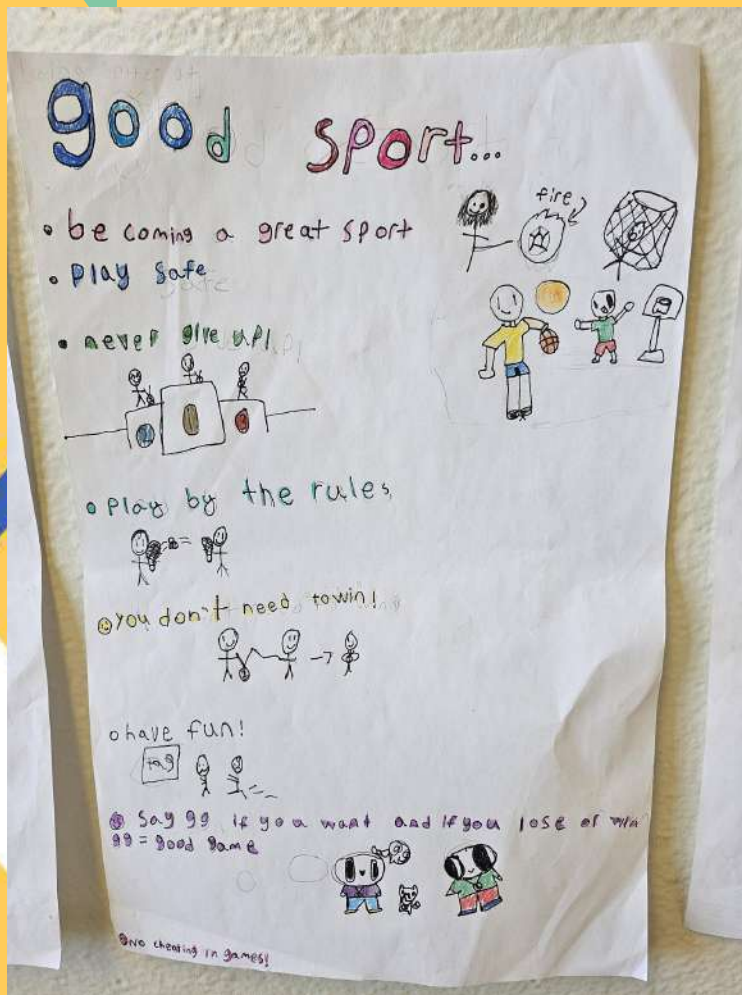 good sport...
fire
• be coming a great sport
• play safe
• never give up!
2 1 3
• play by the rules
you don't need to win!
o have fun!
tag
say gg if you want and if you lose or win
gg = good game
No cheating in games!